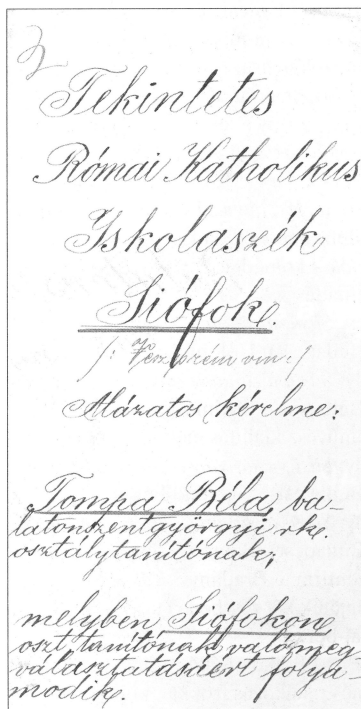 Tekintetes
Római Katholikus
Iskolaszék
Siófok.
/: Veszprém vm :/
Alázatos kérelme:
Tompa Béla, ba-
latonszentgyörgyi rk.
osztálytanítónak;
melyben Siófokon
oszt. tanítónak való meg-
választatásáért folya-
modik.